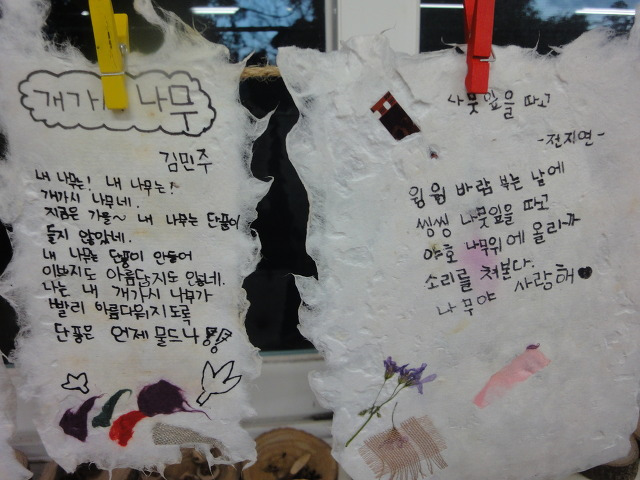 개가시 나무
김민주
내 나무는! 내 나무는!
개가시 나무네.
지금은 가을~ 내 나무는 단풍이
들지 않았네.
내 나무는 단풍이 안들어
이쁘지도 아름답지도 않네.
나는 내 개가시 나무가
빨리 아름다워지도록
단풍은 언제 물드나
나뭇잎을 타고
-전지연-
윙윙 바람 부는 날에
씽씽 나뭇잎을 타고
야호 나무위에 올라가
소리를 쳐본다.
나무야 사랑해♥